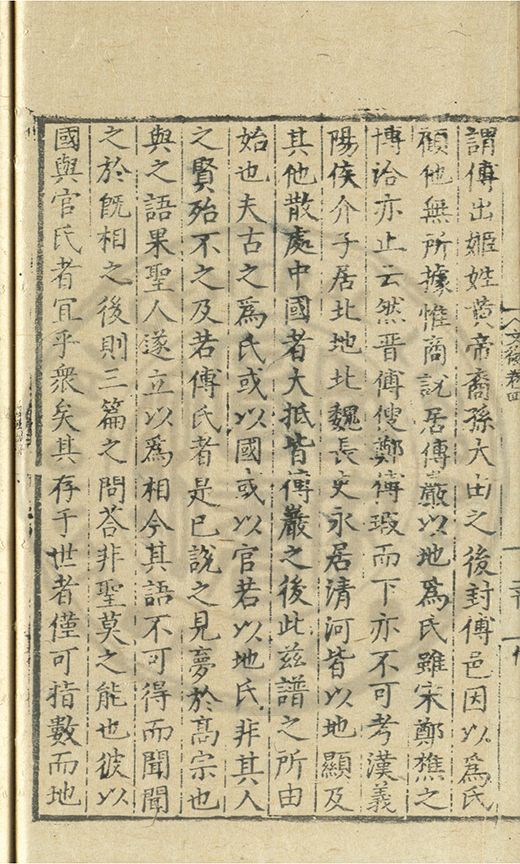 謂傅出姬姓黃帝裔孫大由之後封傅邑因以爲氏
顧他無所據惟商說居傅巖以地爲氏雖宋鄭樵之
博洽亦止云然晋傅傁鄭傅瑕而下亦不可考漢義
陽侯介子居北地北魏長史永居清河皆以地顯及
其他散處中國者大抵皆傅巖之後此茲譜之所由
始也夫古之爲氏或以國或以官若以地氏非其人
之賢殆不之及若傅氏者是已說之見夢於高宗也
與之語果聖人遂立以爲相今其語不可得而聞聞
之於旣相之後則三篇之問荅非聖莫之能也彼以
國與官氏者冝乎衆矣其存于世者僅可指數而地